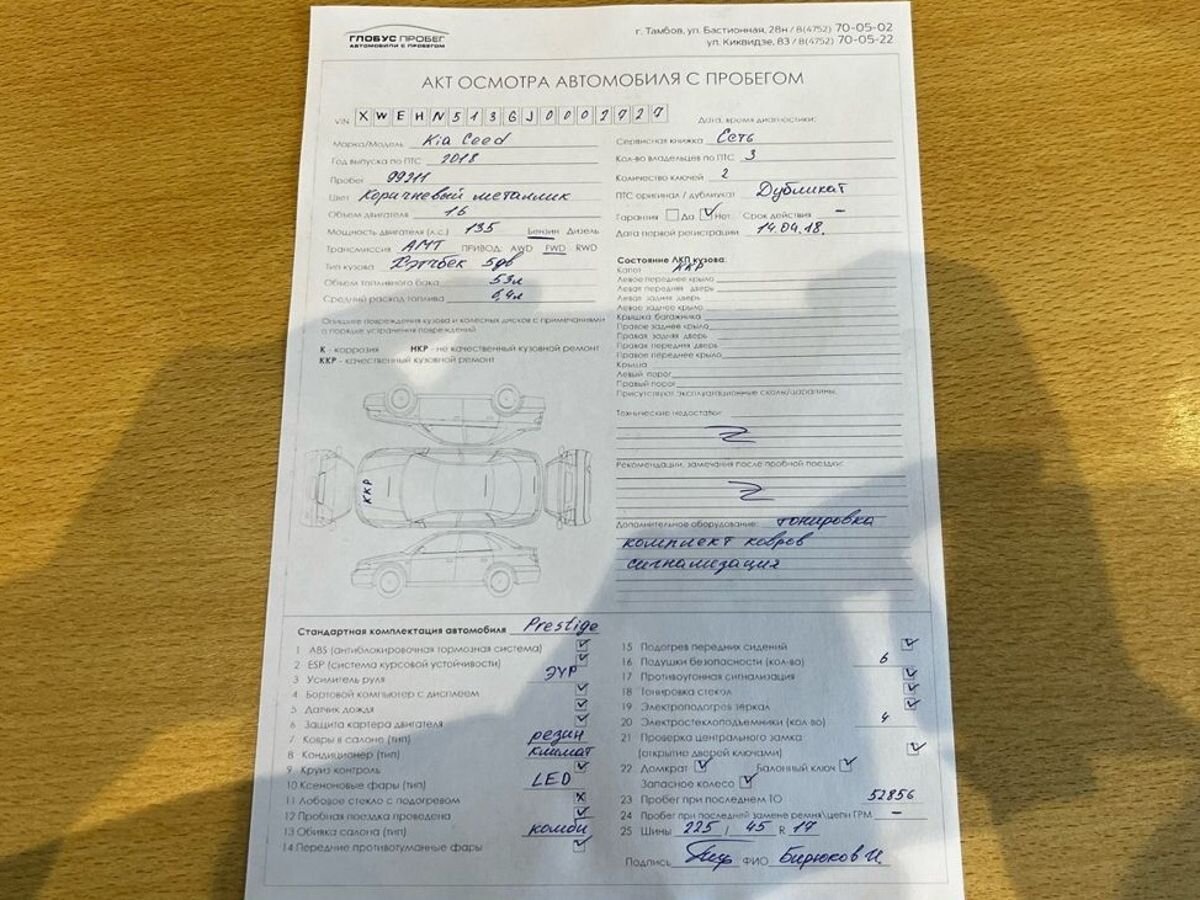 ГЛОБУС ПРОБЕГ
АВТОМОБИЛИ С ПРОБЕГОМ
г. Тамбов, ул. Бастионная, 28н / 8(4752) 70-05-02
ул. Киквидзе, 83 / 8(4752) 70-05-22
АКТ ОСМОТРА АВТОМОБИЛЯ С ПРОБЕГОМ
VIN XWEHN513GJ0002727
Марка/Модель Kia Ceed
Год выпуска по ПТС 2018
Пробег 99211
Цвет Коричневый металлик
Объем двигателя 16
Мощность двигателя (л.с.) 135 Бензин Дизель
Трансмиссия АМТ ПРИВОД: AWD FWD RWD
Тип кузова Хэтчбек 5дв
Объем топливного бака 53л
Средний расход топлива 6,4л
Опишите повреждения кузова и колесных дисков с примечаниями
о порядке устранения повреждений
К - коррозия НКР - не качественный кузовной ремонт
ККР - качественный кузовной ремонт
ККР
Дата, время диагностики:
Сервисная книжка Сеть
Кол-во владельцев по ПТС 3
Количество ключей 2
ПТС оригинал / дубликат Дубликат
Гарантия Да Нет Срок действия –
Дата первой регистрации 14.04.18.
Состояние ЛКП кузова:
Капот ККР
Левое переднее крыло
Левая передняя дверь
Левая задняя дверь
Левое заднее крыло
Крышка багажника
Правое заднее крыло
Правая задняя дверь
Правая передняя дверь
Правое переднее крыло
Крыша
Левый порог
Правый порог
Присутствуют эксплуатационные сколы/царапины.
Технические недостатки:
Рекомендации, замечания после пробной поездки:
Дополнительное оборудование: тонировка
комплект ковров
сигнализация
Стандартная комплектация автомобиля Prestige
1 ABS (антиблокировочная тормозная система)
2 ESP (система курсовой устойчивости)
3 Усилитель руля ЭУР
4 Бортовой компьютер с дисплеем
5 Датчик дождя
6 Защита картера двигателя
7 Ковры в салоне (тип) резин
8 Кондиционер (тип) климат
9 Круиз контроль
10 Ксеноновые фары (тип) LED
11 Лобовое стекло с подогревом
12 Пробная поездка проведена
13 Обивка салона (тип) комби
14 Передние противотуманные фары
15 Подогрев передних сидений
16 Подушки безопасности (кол-во) 6
17 Противоугонная сигнализация
18 Тонировка стекол
19 Электроподогрев зеркал
20 Электростеклоподъемники (кол-во) 4
21 Проверка центрального замка
(открытие дверей ключами)
22 Домкрат Балонный ключ
Запасное колесо
23 Пробег при последнем ТО 52856
24 Пробег при последней замене ремня\цепи ГРМ –
25 Шины 225 / 45 R 17
Подпись ФИО Бирюков И.